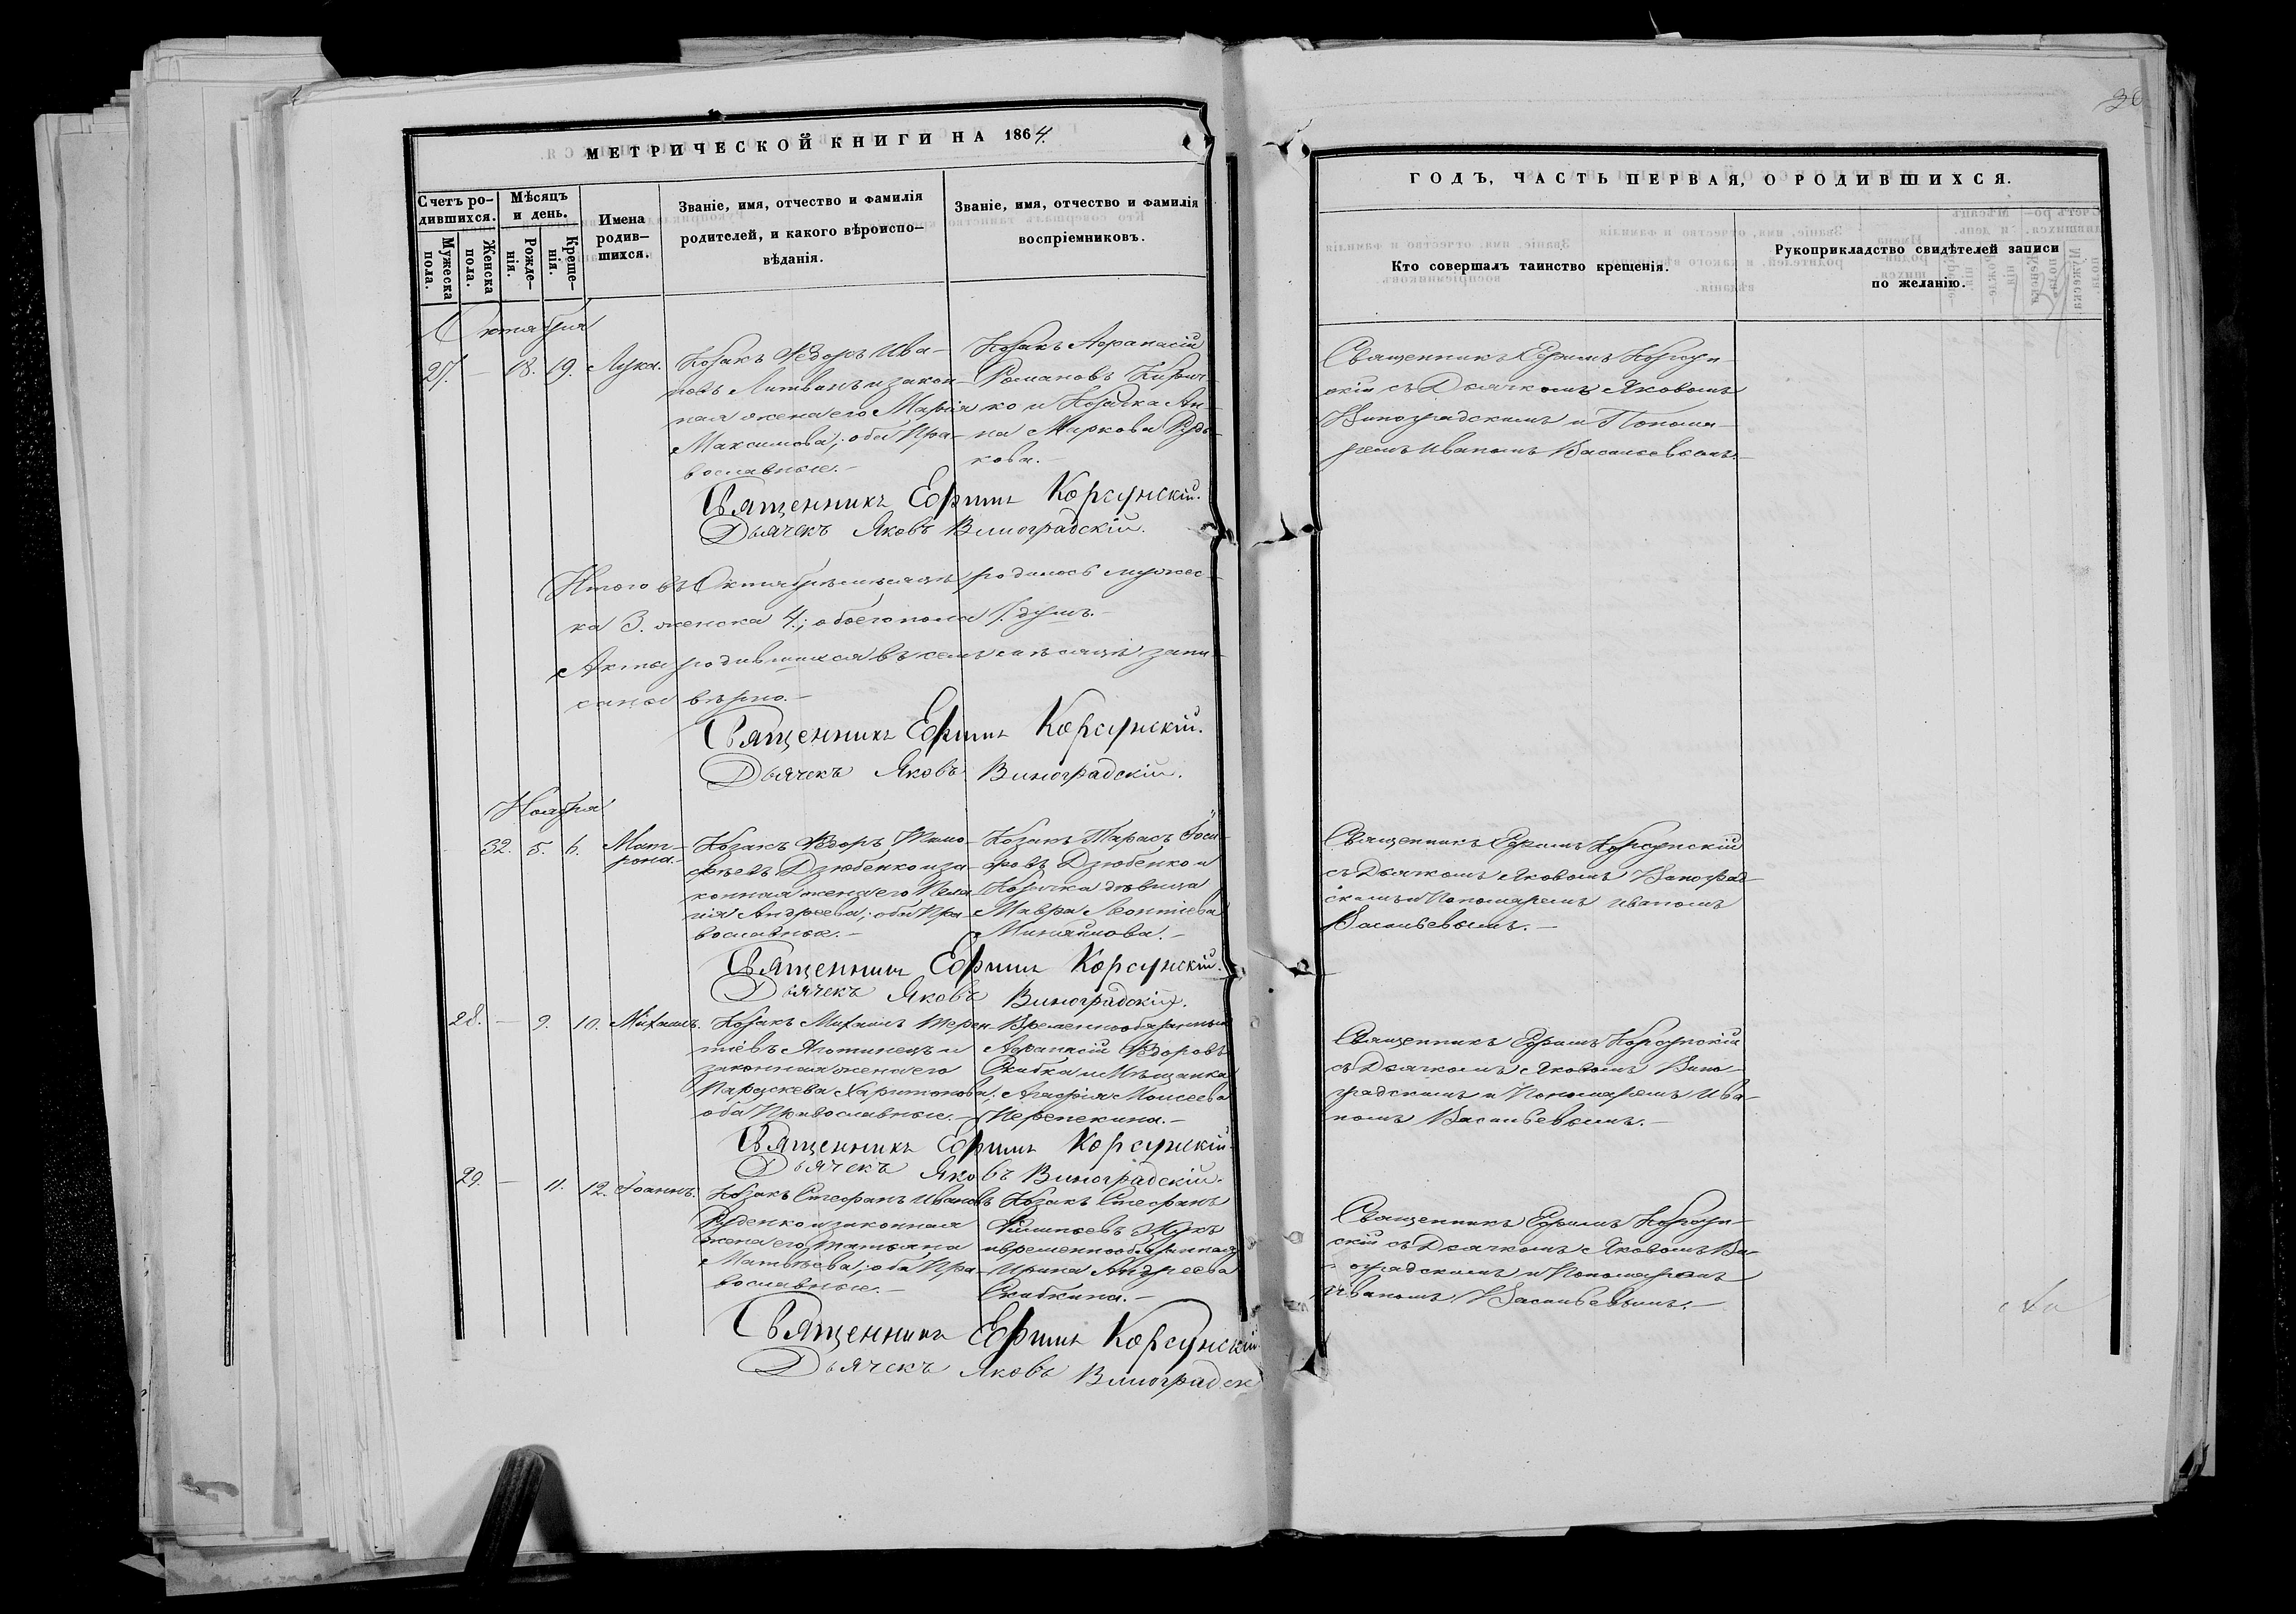 МЕТРИЧЕСКОЙ КНИГИ НА 1864.
Счетъ ро-
дившихся.
Мужеска пола.
Женска пола.
Мѣсяцъ и день.
Рожде-
нія.
Креще-
нія.
Имена
родив-
шихся.
Званіе, имя, отчество и фамилія
родителей, и какого вѣроиспо-
вѣданія.
Званіе, имя, отчество и фамилія
воспріемниковъ.
Октября
27. — 18. 19. Лука.
Козакъ Ѳедоръ Ива-
новъ Литвинъ и закон-
ная жена его Марія
Максимова; оба Пра-
вославные. —
Козакъ Афанасій
Романовъ Кирич-
ко и Козачка Ан-
на Маркова Рудь-
кова. —
Священникъ Ефимъ Корсунскій.
Дьячекъ Яковъ Виноградскій.
Итого въ Октябрѣ мѣсяцѣ родилось мужес-
ка 3. женска 4.; обоего пола 7. душъ. —
Акты родившихся въ семъ мѣсяцѣ запи-
саны вѣрно. —
Священникъ Ефимъ Корсунскій.
Дьячекъ Яковъ Виноградскій.
Ноября
32. 5. 6. Мат-
рона. —
Козакъ Ѳедоръ Тимо-
фѣевъ Дзюбенко и за-
конная жена его Пела-
гія Андреева; оба Пра-
вославные. —
Козакъ Тарасъ Іоси-
фовъ Дзюбенко и
Козачка дѣвица
Мавра Леонтіева
Миняйлова. —
Священникъ Ефимъ Корсунскій.
Дьячекъ Яковъ Виноградскій.
28. — 9. 10. Михаилъ.
Козакъ Михаилъ Терен-
тіевъ Яготинецъ и
законная жена его
Параскева Харитонова;
оба Православные. —
Временнообязанный
Афанасій Ѳедоровъ
Скибка и Мѣщанка
Агафія Моисеева
Перепекина. —
Священникъ Ефимъ Корсунскій.
Дьячекъ Яковъ Виноградскій.
29. — 11. 12. Іоаннъ.
Козакъ Стефанъ Ивановъ
Руденко и законная
жена его Татьяна
Матвѣева; оба Пра-
вославные. —
Козакъ Стефанъ
Филиповъ Жукъ
и временнообязанная
Ирина Андреева
Скибкина. —
Священникъ Ефимъ Корсунскій
Дьячекъ Яковъ Виноградск
ГОДЪ, ЧАСТЬ ПЕРВАЯ, О РОДИВШИХСЯ.
Кто совершалъ таинство крещенія.
Рукоприкладство свидѣтелей записи
по желанію.
Священникъ Ефимъ Корсун-
скій съ Дьячкомъ Яковомъ
Виноградскимъ и Понома-
ремъ Иваномъ Васильевымъ. —
Священникъ Ефимъ Корсунскій
съ Дьячкомъ Яковомъ Виноград-
скимъ и Пономаремъ Иваномъ
Васильевымъ. —
Священникъ Ефимъ Корсунскій
съ Дьячкомъ Яковомъ Вино-
градскимъ и Пономаремъ Ива-
номъ Васильевымъ. —
Священникъ Ефимъ Корсун-
скій съ Дьячкомъ Яковомъ Ви-
ноградскимъ и Пономаремъ
Иваномъ Васильевымъ. —